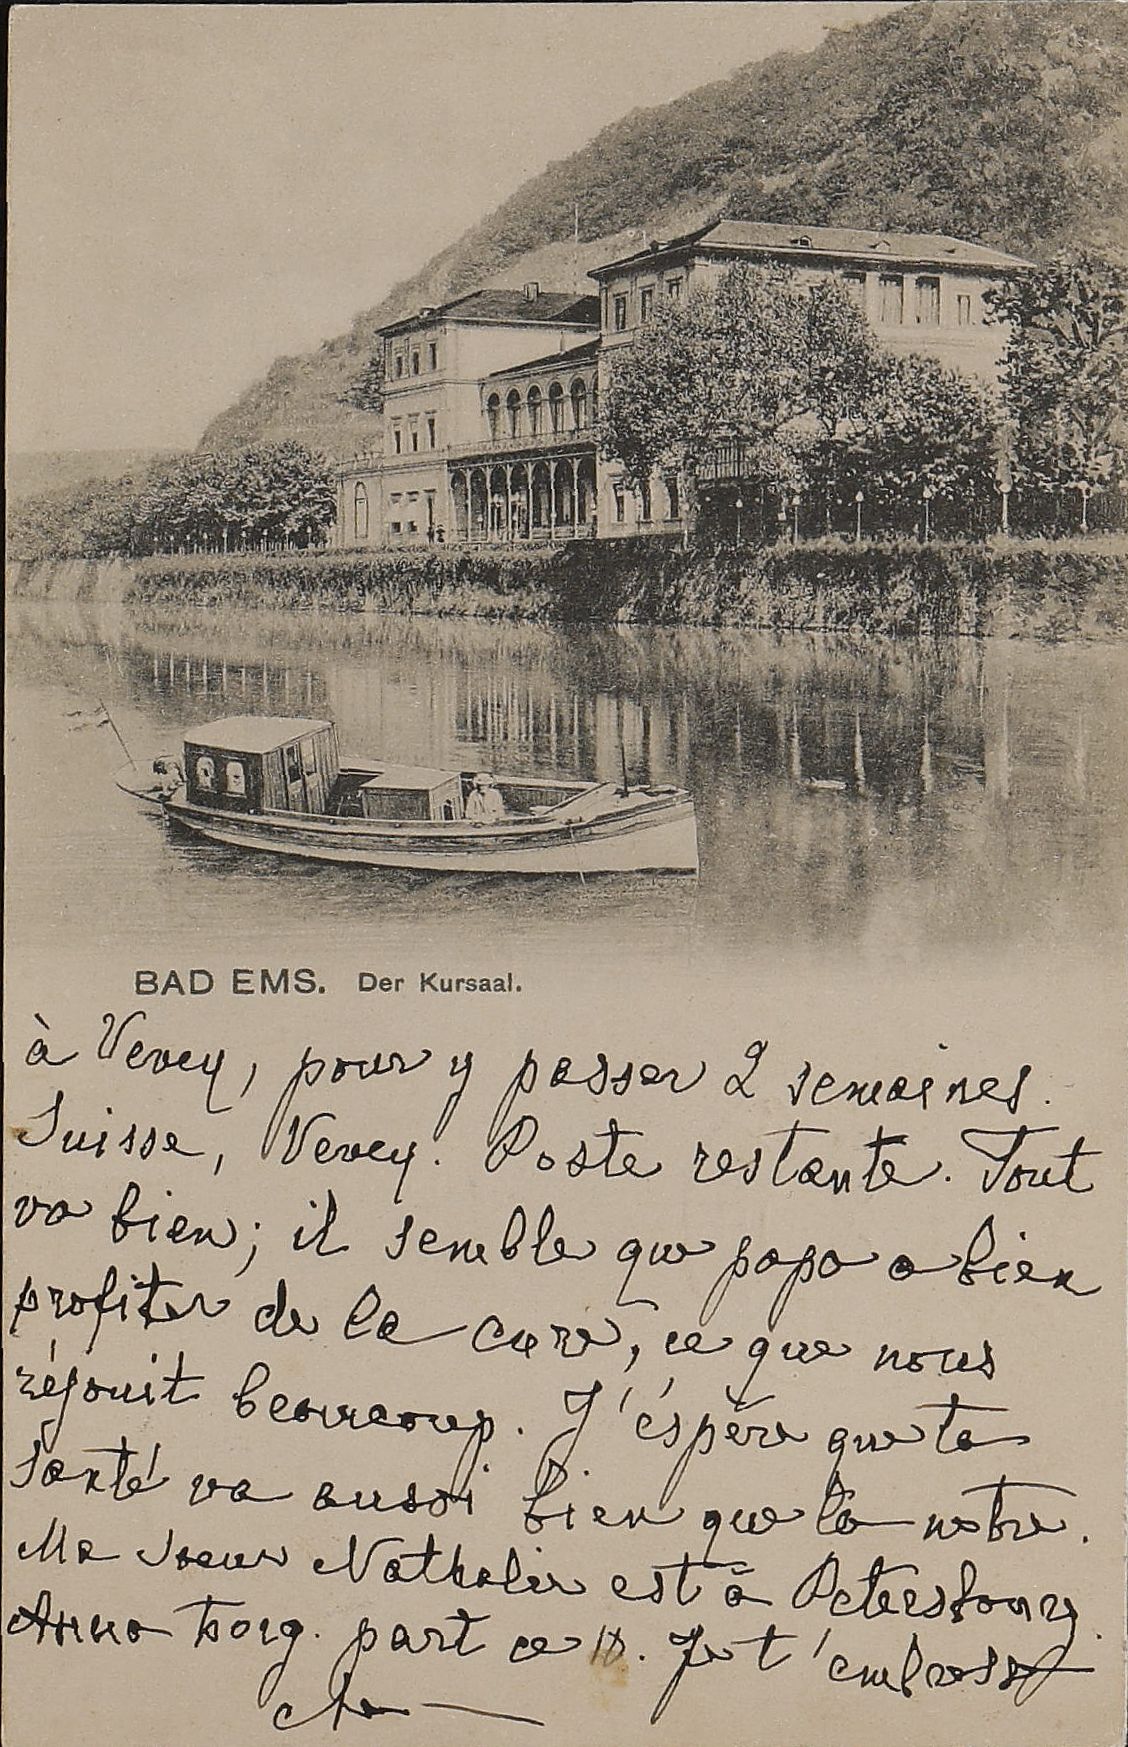 BAD EMS. Der Kursaal.
à Vevey, pour y passer 2 semaines.
Suisse, Vevey. Poste restante. Tout
va bien; il semble que papa a bien
profiter de la cure, ce que nous
réjouit beaucoup. J'éspère que ta
santé va aussi bien que la notre.
Ma soeur Nathalie est à Petersbourg.
Anna part ce. Je t'embrasse